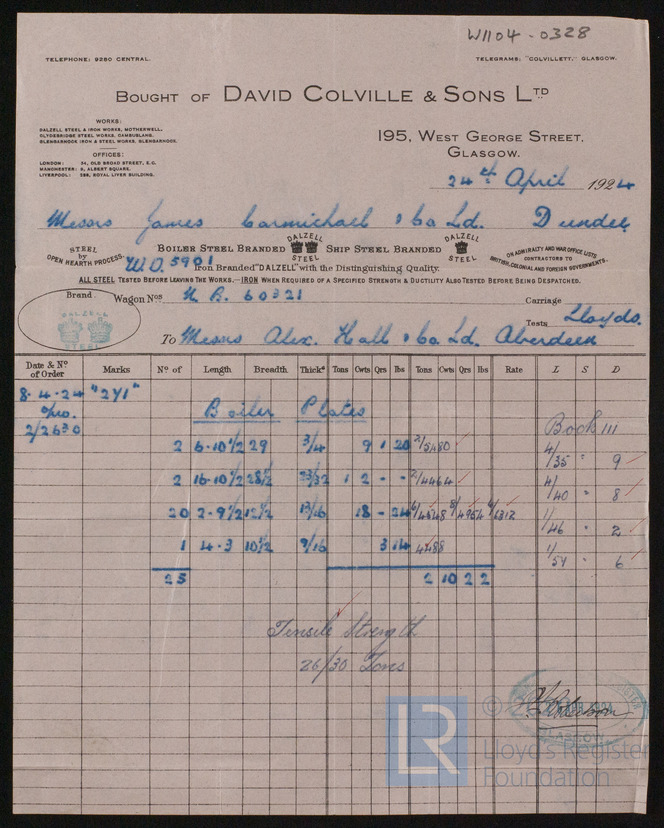 W1104-0328
TELEPHONE: 9280 CENTRAL. TELEGRAMS: "COLVILLETT," GLASGOW.
BOUGHT OF DAVID COLVILLE & SONS LTD
WORKS:
DALZELL STEEL & IRON WORKS, MOTHERWELL.
CLYDEBRIDGE STEEL WORKS, CAMBUSLANG.
GLENGARNOCK IRON & STEEL WORKS, GLENGARNOCK.
195, WEST GEORGE STREET,
GLASGOW.
OFFICES:
LONDON: 34, OLD BROAD STREET, E.C.
MANCHESTER: 9, ALBERT SQUARE.
LIVERPOOL: 528, ROYAL LIVER BUILDING.
24th April 1924
Messrs James Carmichael & Co Ld. Dundee
STEEL by OPEN HEARTH PROCESS. BOILER STEEL BRANDED DALZELL STEEL SHIP STEEL BRANDED DALZELL STEEL ON ADMIRALTY AND WAR OFFICE LISTS
CONTRACTORS TO BRITISH, COLONIAL AND FOREIGN GOVERNMENTS.
W.O. 5901 Iron Branded "DALZELL" with the Distinguishing Quality.
ALL STEEL TESTED BEFORE LEAVING THE WORKS.—IRON WHEN REQUIRED OF A SPECIFIED STRENGTH & DUCTILITY ALSO TESTED BEFORE BEING DESPATCHED.
Brand. Wagon Nos N.B. 60321 Carriage
DALZELL STEEL
Tests Lloyds.
To Messrs Alex. Hall & Co Ld. Aberdeen
Date & No of Order Marks No of Length Breadth Thickss Tons Cwts Qrs lbs Tons Cwts Qrs lbs Rate L S D
8.4.24 "241"
2/2630
Boiler Plates
Book 111
2 6-10 1/2 29 3/4 9 1 20 2/5480 4/35 " 9
2 16-10 1/2 28 1/2 23/32 1 2 - - 2/4464 4/40 " 8
20 2-9 1/2 12 1/2 13/16 18 - 24 1/46 " 2
1 4-3 10 1/2 9/16 3 14 4488 1/54 " 6
25 2 10 2 2
Tensile Strength
26/30 Tons
LR
© Lloyd's Register
Foundation